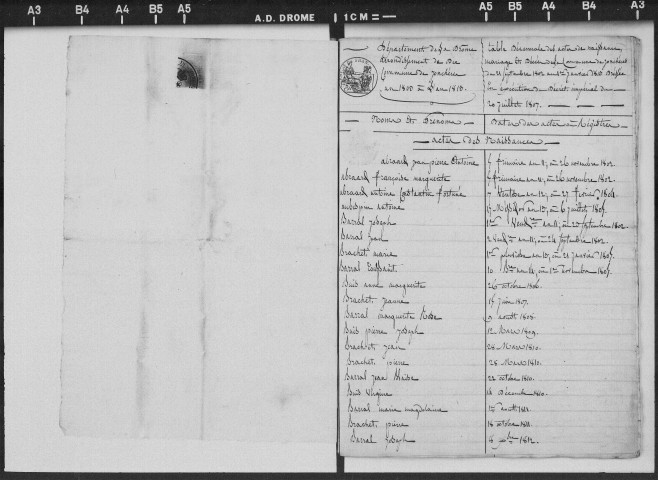 A3 B4 A4 B5 A5 A.D. DROME 1 CM A5 B5 A4 B4 A3
Département de la Drôme
arrondissement de Die
Commune de
an 1800 à L'an 1810.
table Décennale des actes de naissance,
mariage et Décès de la Commune de
en exécution du Décret impérial du
20 juillet 1807.
Noms et Prénoms
Dates des actes au Régistre
actes des Naissances
abraard jean pierre Antoine frimaire an 11, ou 26 novembre 1802.
abraard françoise marguerite frimaire an 11, ou 26 novembre 1802.
abraard antoine Constantin fortuné Ventôse an 12, ou 27 février 1804.
antoine Messidor an 13, ou 6 juillet 1805.
Barral Joseph 1er an 11, ou septembre 1802.
Barral jean an 11, ou 24 septembre 1802.
Brachet marie 1er pluviôse an 13, ou 21 janvier 1805.
Barral 10 an 14, ou 1er novembre 1805.
Buis anne marguerite 26 octobre 1806.
Brachet jeanne 15 juin 1807.
Barral marguerite Rose 9 aoutt 1808.
Buis pierre joseph 12 Mars 1809.
Brachet jean 28 Mars 1810.
Brachet pierre 28 Mars 1810.
Barral jean Blaise 22 octobre 1810.
Buis Virginie 18 Décembre 1810.
Barral marie magdelaine 15 aoutt 1811.
Brachet pierre 18 octobre 1811.
Barral Joseph 4 1812.